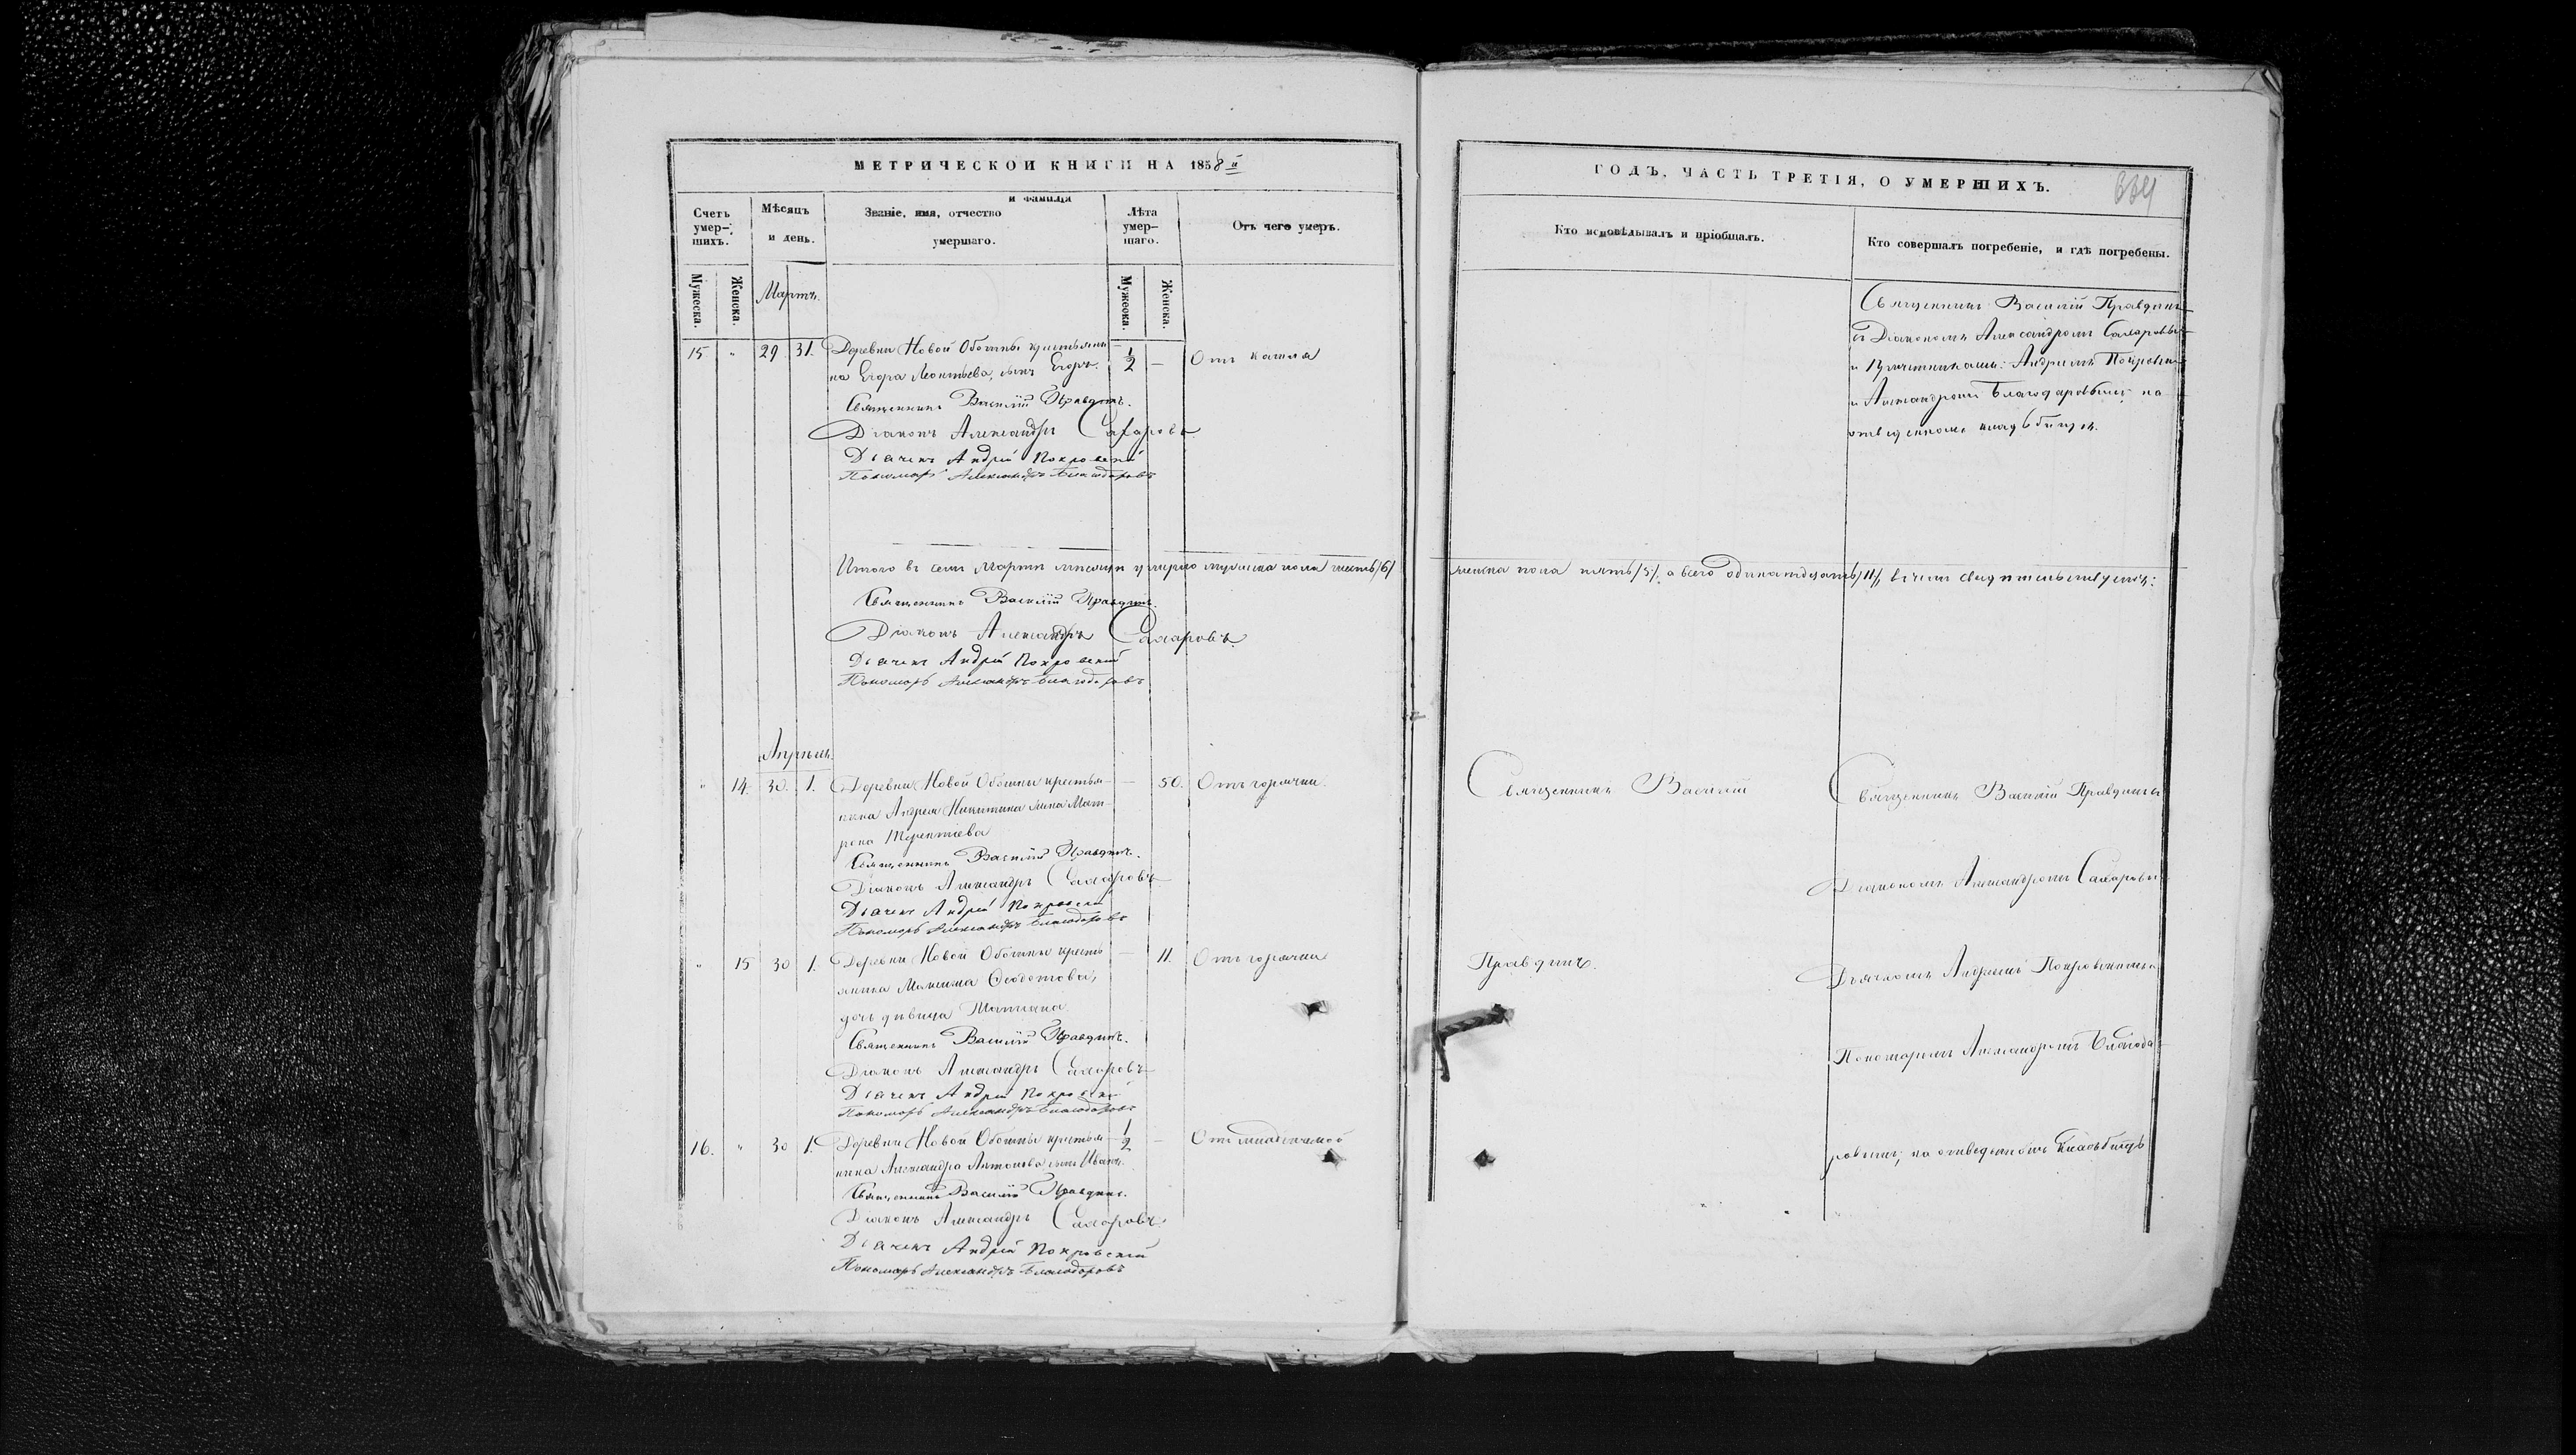 МЕТРИЧЕСКОЙ КНИГИ НА 1858й
Счетъ умер-шихъ.
Мѣсяцъ и день.
Званіе, имя, отчество и фамилія умершаго.
Лѣта умер-шаго.
Отъ чего умеръ.
Мужеска.
Женска.
Мартъ.
Мужеска.
Женска.
15 " 29 31. Деревни Новой Ободины крестьяни- 1/2 — Отъ кашля
на Егора Леонтьева, сынъ Егоръ.
Священникъ Василій Правдинъ.
Діаконъ Александръ Сахаровъ
Дьячекъ Андрей Покровскій
Пономарь Александръ Благодаровъ
Итого въ семъ Мартѣ мѣсяцѣ умерло мужеска пола шесть /6/
Священникъ Василій Правдинъ.
Діаконъ Александръ Сахаровъ.
Дьячекъ Андрей Покровскій
Пономарь Александръ Благодаровъ
Апрѣль.
" 14. 30. 1. Деревни Новой крестья- — 50. Отъ горячки.
нина Андрея Никитина жена Мат-
рена Терентіева
Священникъ Василій Правдинъ.
Діаконъ Александръ Сахаровъ
Дьячекъ Андрей Покровскій
Пономарь Александръ Благодаровъ
" 15 30 1. Деревни Новой кресть- — 11. Отъ горячки
янина Максима Ѳеодотова,
дочь дѣвица Татіана.
Священникъ Василій Правдинъ.
Діаконъ Александръ Сахаровъ
Дьячекъ Андрей Покровскій
Пономарь Александръ Благодаровъ
16. " 30 1. Деревни Новой крестья- 1/2 — Отъ младенческой
нина Александра Антонова сынъ Иванъ.
Священникъ Василій Правдинъ.
Діаконъ Александръ Сахаровъ.
Дьячекъ Андрей Покровскій
Пономарь Александръ Благодаровъ
ГОДЪ, ЧАСТЬ ТРЕТІЯ, О УМЕРШИХЪ.
334
Кто исповѣдывалъ и пріобщалъ.
Кто совершалъ погребеніе, и гдѣ погребены.
Священникъ Василій Правдинъ
съ Діакономъ Александромъ Сахаровымъ
и Причетниками: Андреемъ Покровскимъ
и Александромъ Благодаровымъ на
отведенномъ кладбищѣ.
женска пола пять /5/, а всего одинадцать /11/, въ чемъ свидѣтельствуемъ:
Священникъ Василій
Священникъ Василій Правдинъ съ
Діакономъ Александромъ Сахаровымъ
Правдинъ.
Дьячкомъ Андреемъ Покровскимъ и
Пономаремъ Александромъ Благода-
ровымъ, на отведенномъ кладбищѣ